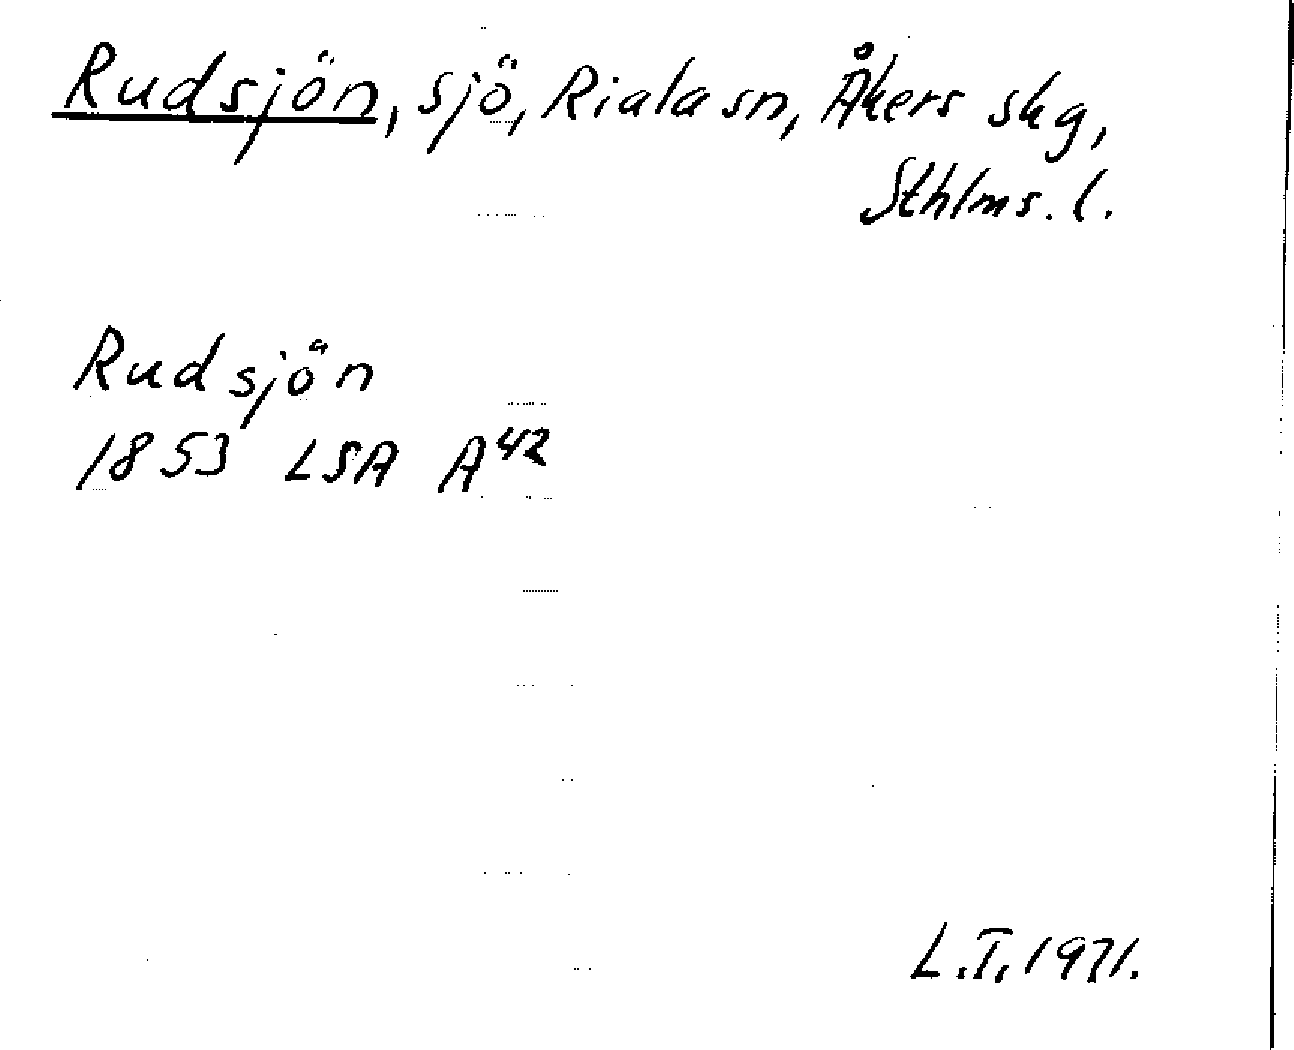 Rudsjön, sjö, Riala sn, Åkers skg,
Sthlms. l.
Rudsjön
1853 LSA A⁴²
L.T. 1971.